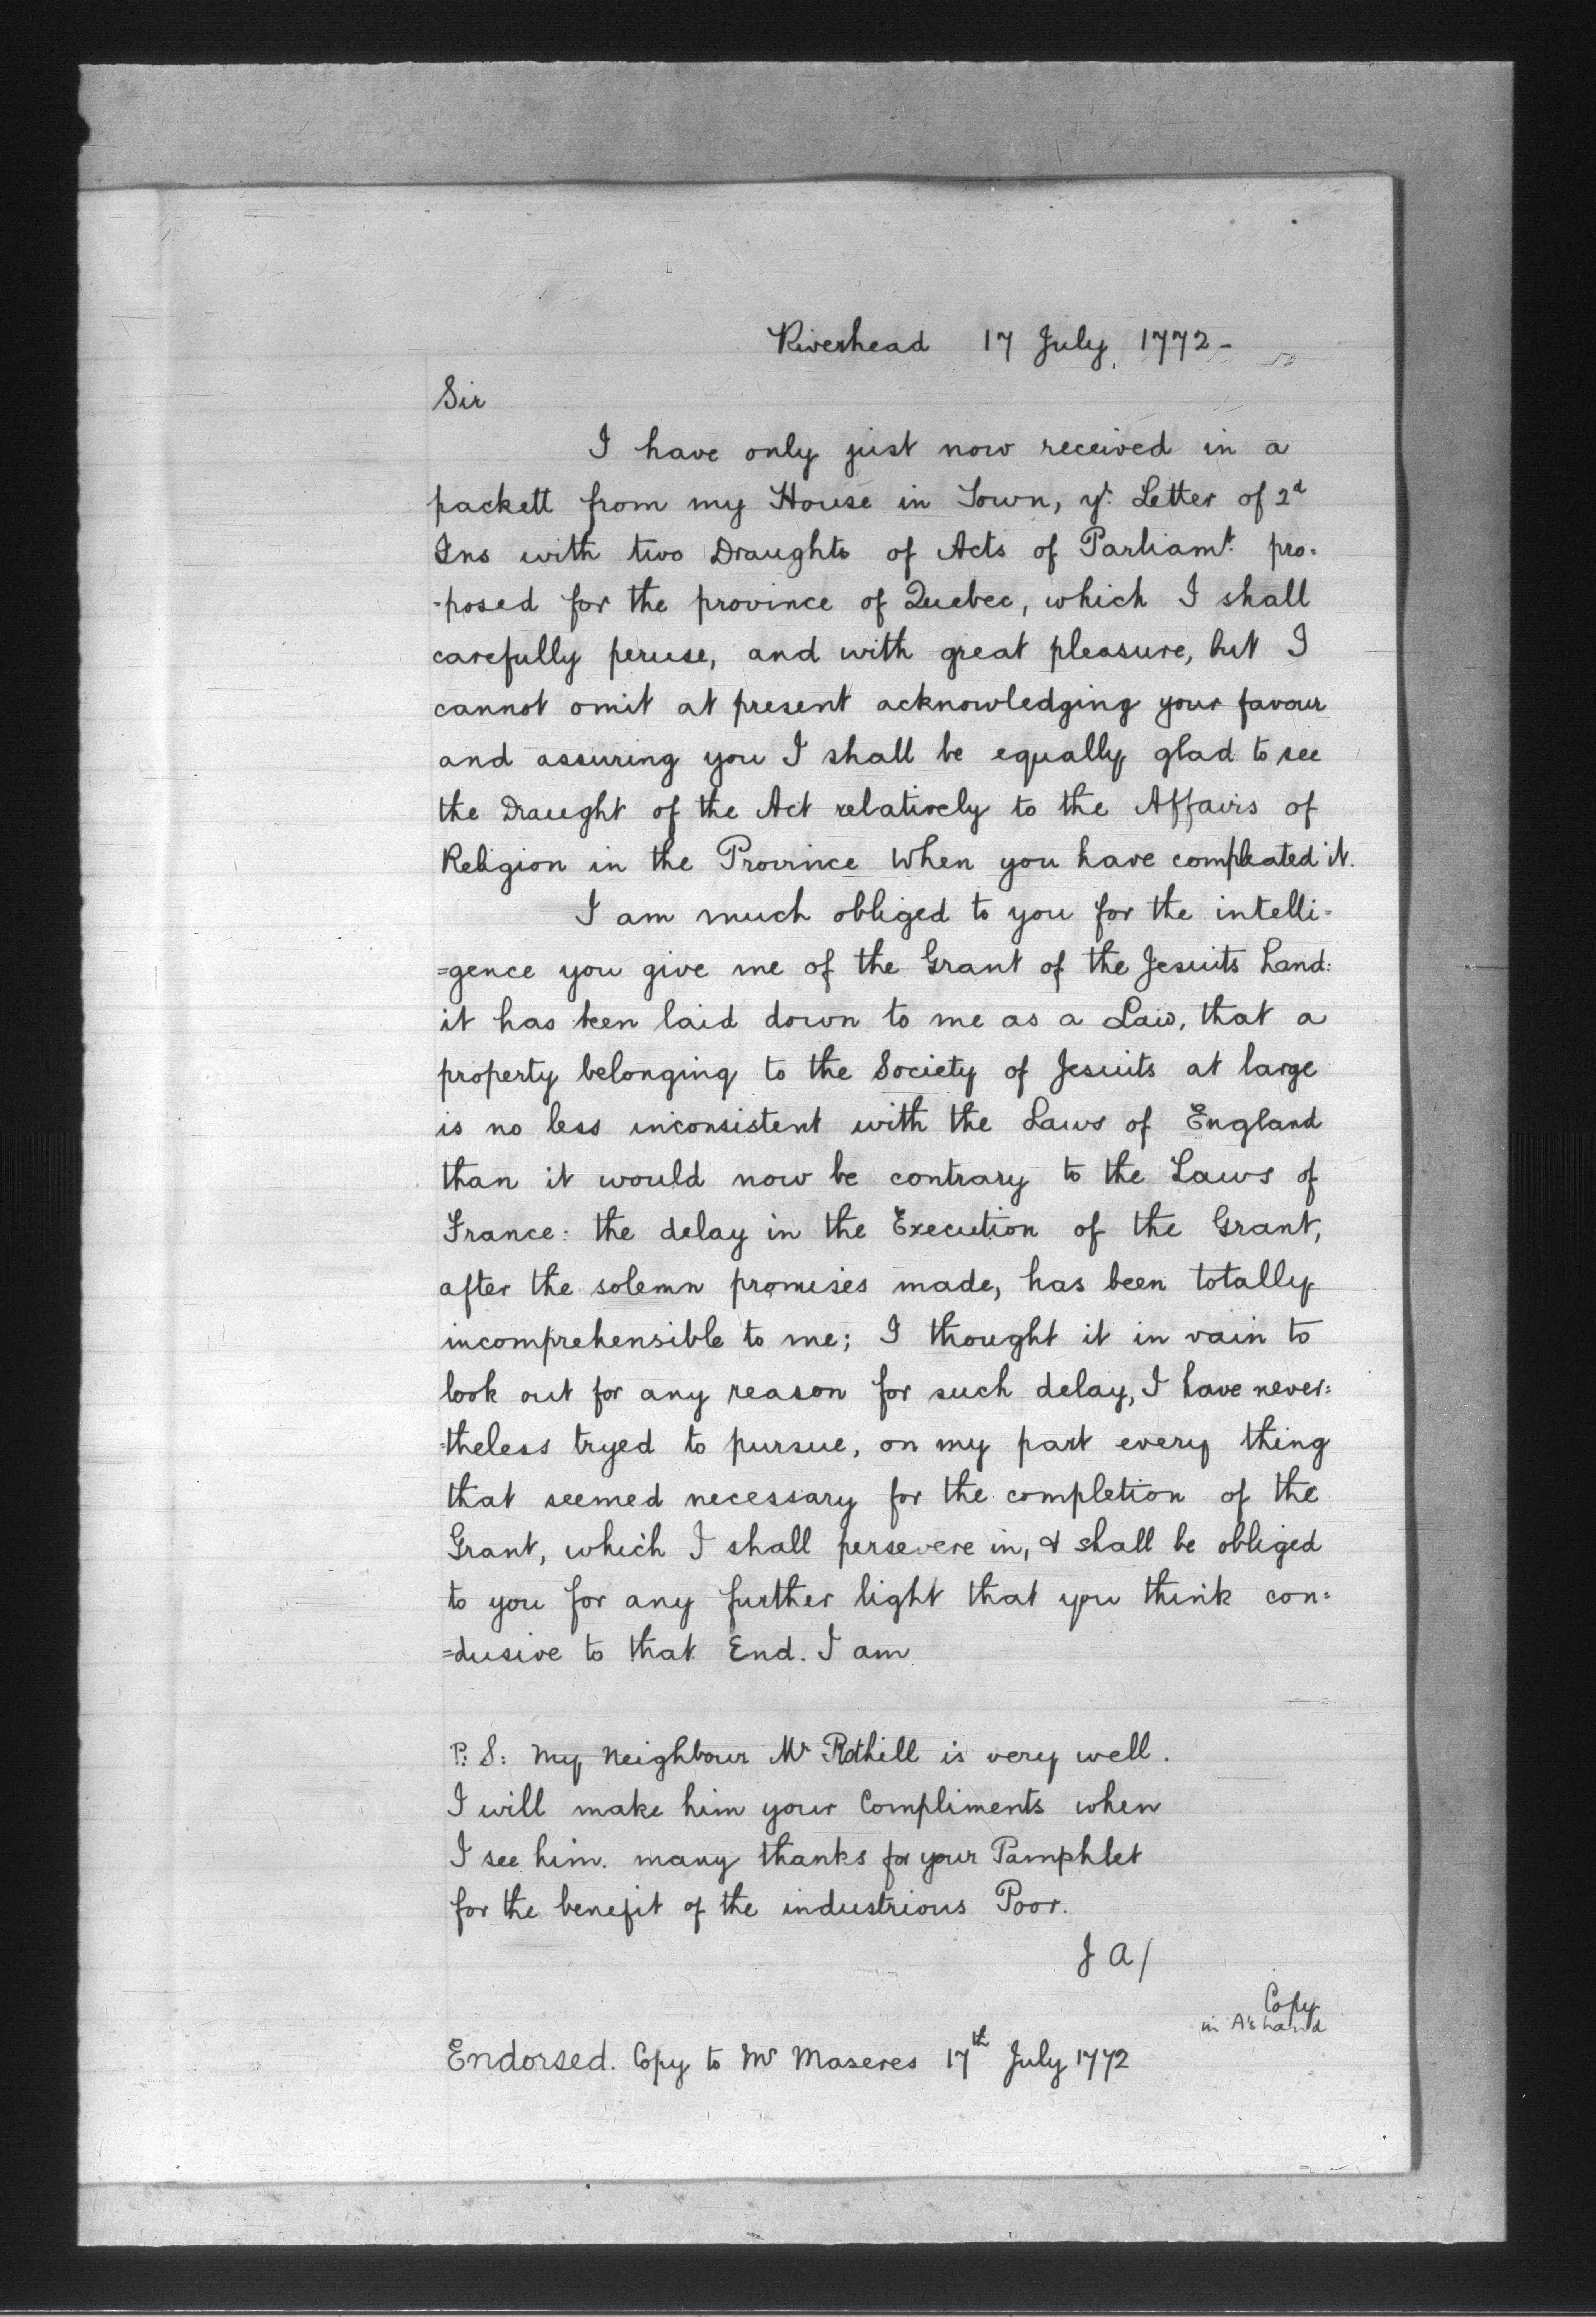 Riverhead 17 July, 1772 -
Sir
I have only just now received in a
packett from my House in Town, yr. Letter of 2d
Ins with two Draughts of Acts of Parliamt. pro-
-posed for the province of Quebec, which I shall
carefully peruse, and with great pleasure, but I
cannot omit at present acknowledging your favour
and assuring you I shall be equally glad to see
the Draught of the Act relatively to the Affairs of
Religion in the Province when you have compleated it.
I am much obliged to you for the intelli=
=gence you give me of the Grant of the Jesuits Land:
it has been laid down to me as a Law, that a
property belonging to the Society of Jesuits at large
is no less inconsistent with the Laws of England
than it would now be contrary to the Laws of
France: the delay in the Execution of the Grant,
after the solemn promises made, has been totally
incomprehensible to me; I thought it in vain to
look out for any reason for such delay, I have never=
=theless tryed to pursue, on my part every thing
that seemed necessary for the completion of the
Grant, which I shall persevere in, & shall be obliged
to you for any further light that you think con=
=dusive to that End. I am
P: S: My Neighbour Mr Rothill is very well.
I will make him your Compliments when
I see him. many thanks for your Pamphlet
for the benefit of the industrious Poor.
J A/
Copy
in A's hand
Endorsed. Copy to Mr Maseres 17th July 1772